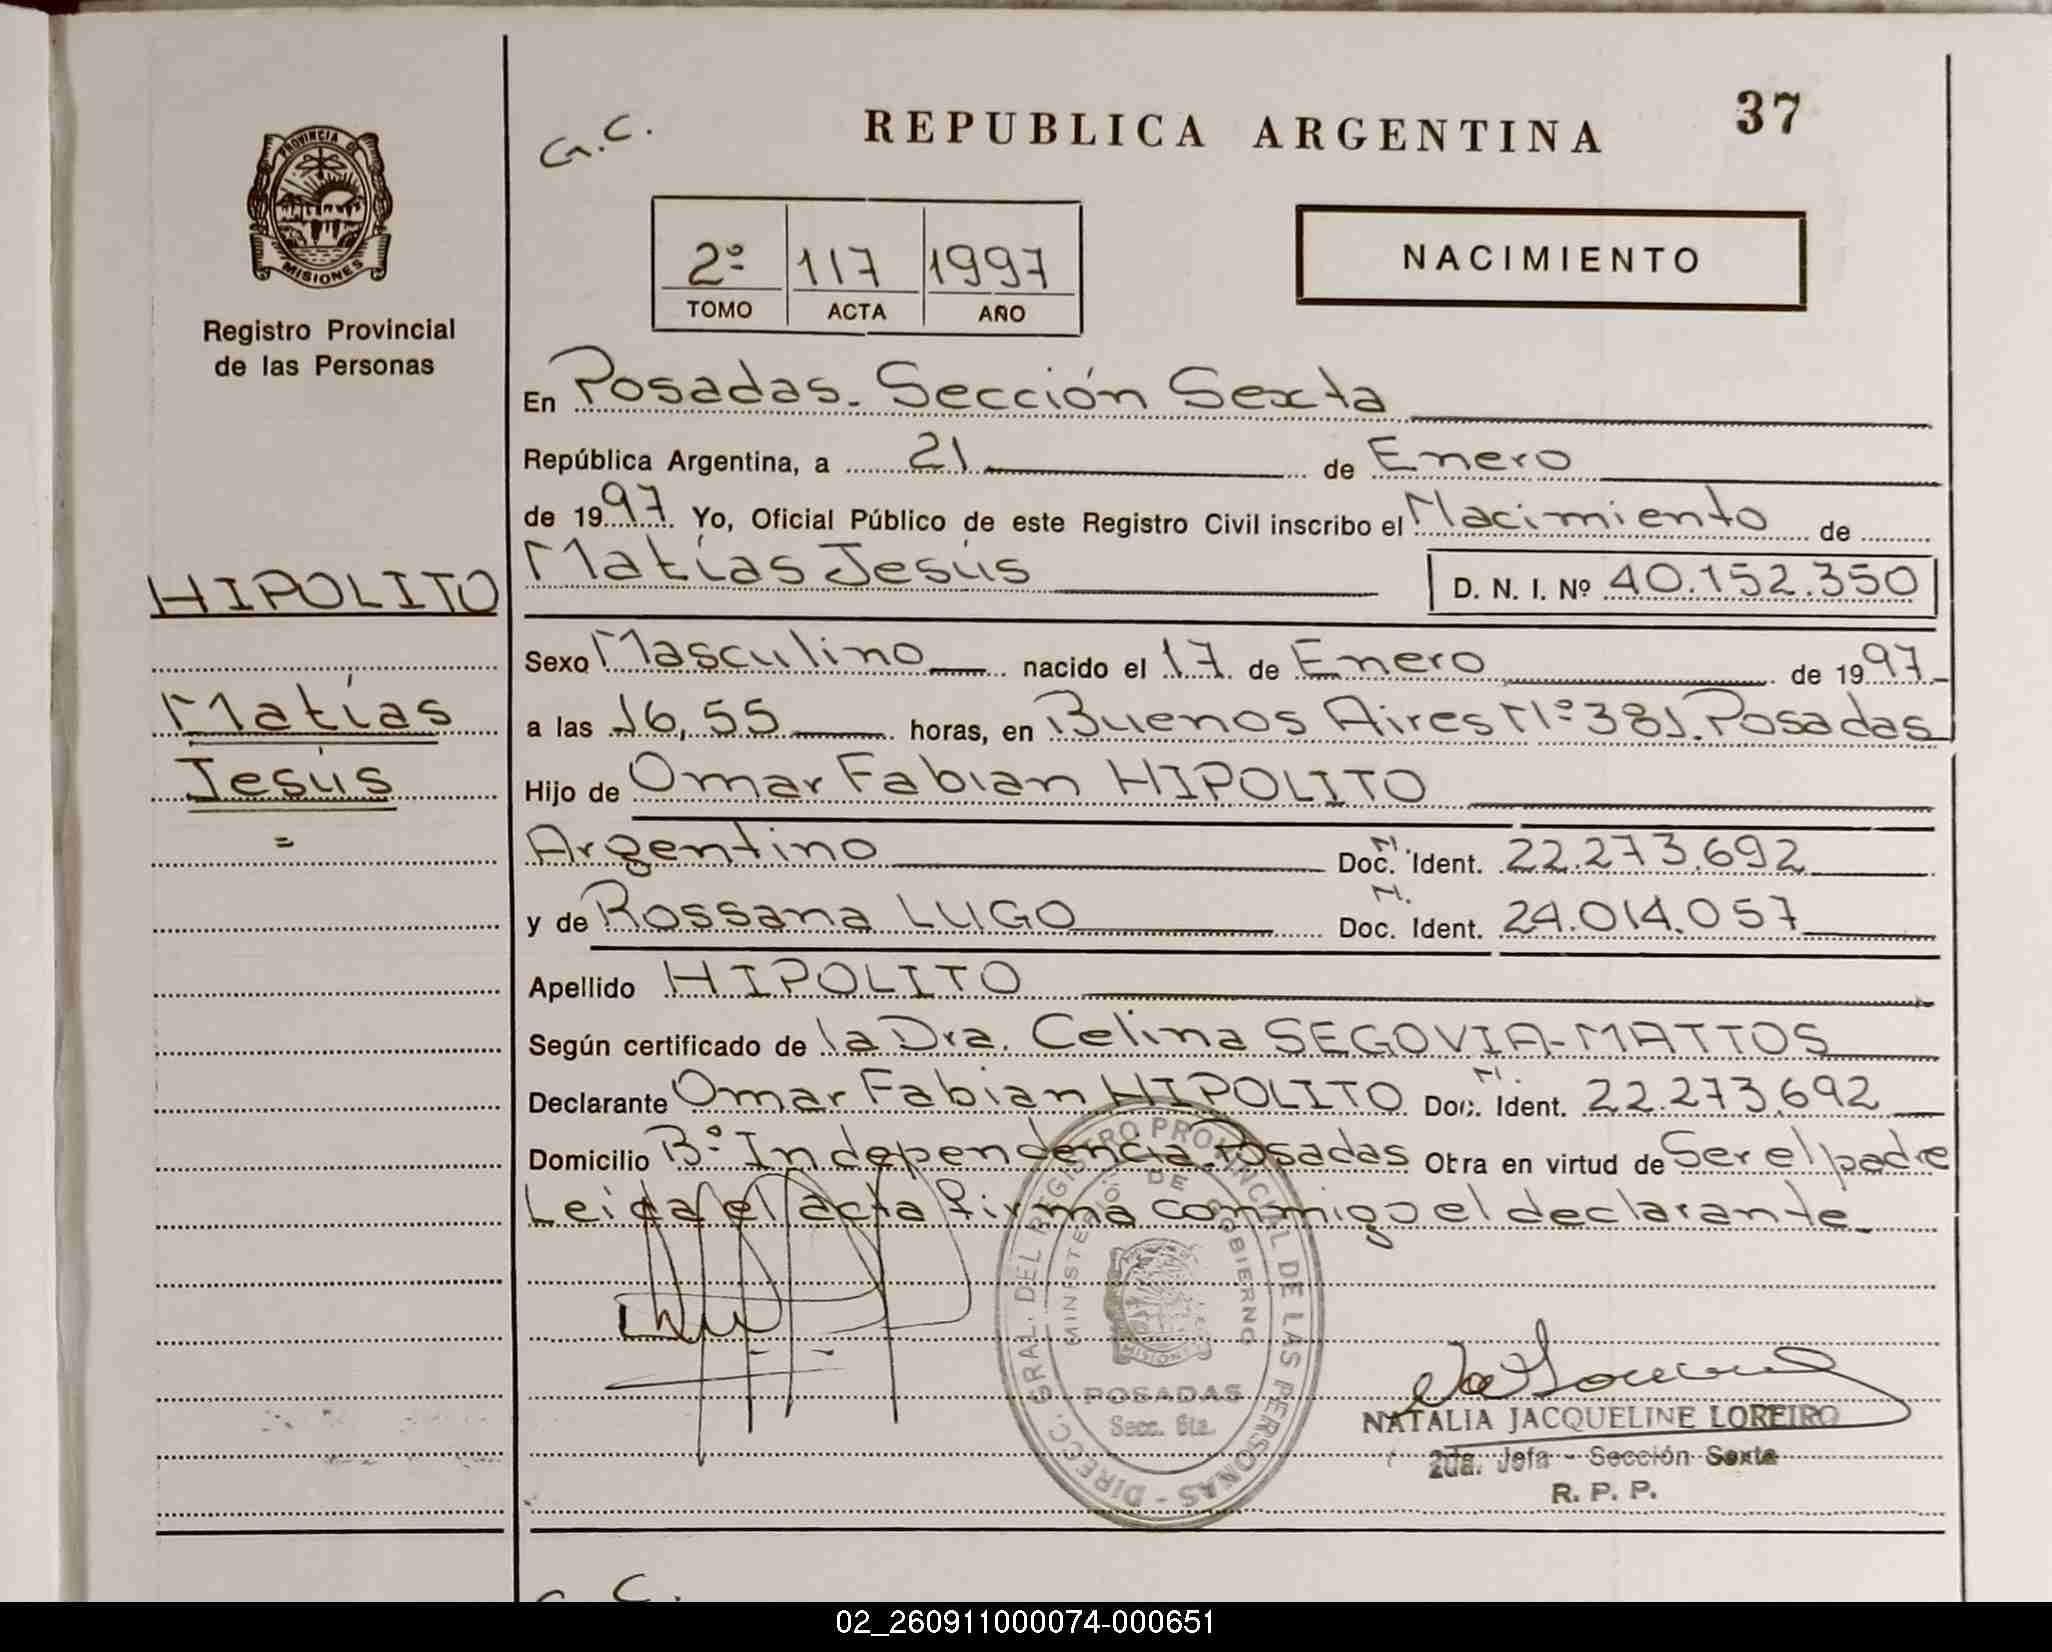 G.C.
REPUBLICA ARGENTINA
37
PROVINCIA DE
MISIONES
Registro Provincial
de las Personas
2º 117 1997
TOMO ACTA AÑO
NACIMIENTO
En Posadas. Sección Sexta
República Argentina, a 21 de Enero
de 1997 Yo, Oficial Público de este Registro Civil inscribo el Nacimiento de
HIPOLITO
Matías Jesús D. N. I. Nº 40.152.350
Sexo Masculino nacido el 17 de Enero de 1997
Matías
a las 16,55 horas, en Buenos Aires Nº 381. Posadas
Jesús
Hijo de Omar Fabian HIPOLITO
=
Argentino Doc. N. Ident. 22.273.692
y de Rossana LUGO Doc. N. Ident. 24.014.057
Apellido HIPOLITO
Según certificado de la Dra. Celina SEGOVIA-MATTOS
Declarante Omar Fabian HIPOLITO Doc. N. Ident. 22.273.692
Domicilio Bº Independencia Posadas Obra en virtud de Ser el padre
Leida el acta firma conmigo el declarante
DIRECC. GRAL. DEL REGISTRO PROVINCIAL DE LAS PERSONAS -
MINISTERIO DE GOBIERNO
MISIONES
POSADAS
Secc. 6ta.
NATALIA JACQUELINE LOREIRO
2da. Jefa - Sección Sexta
R. P. P.
G.C.
02_260911000074-000651